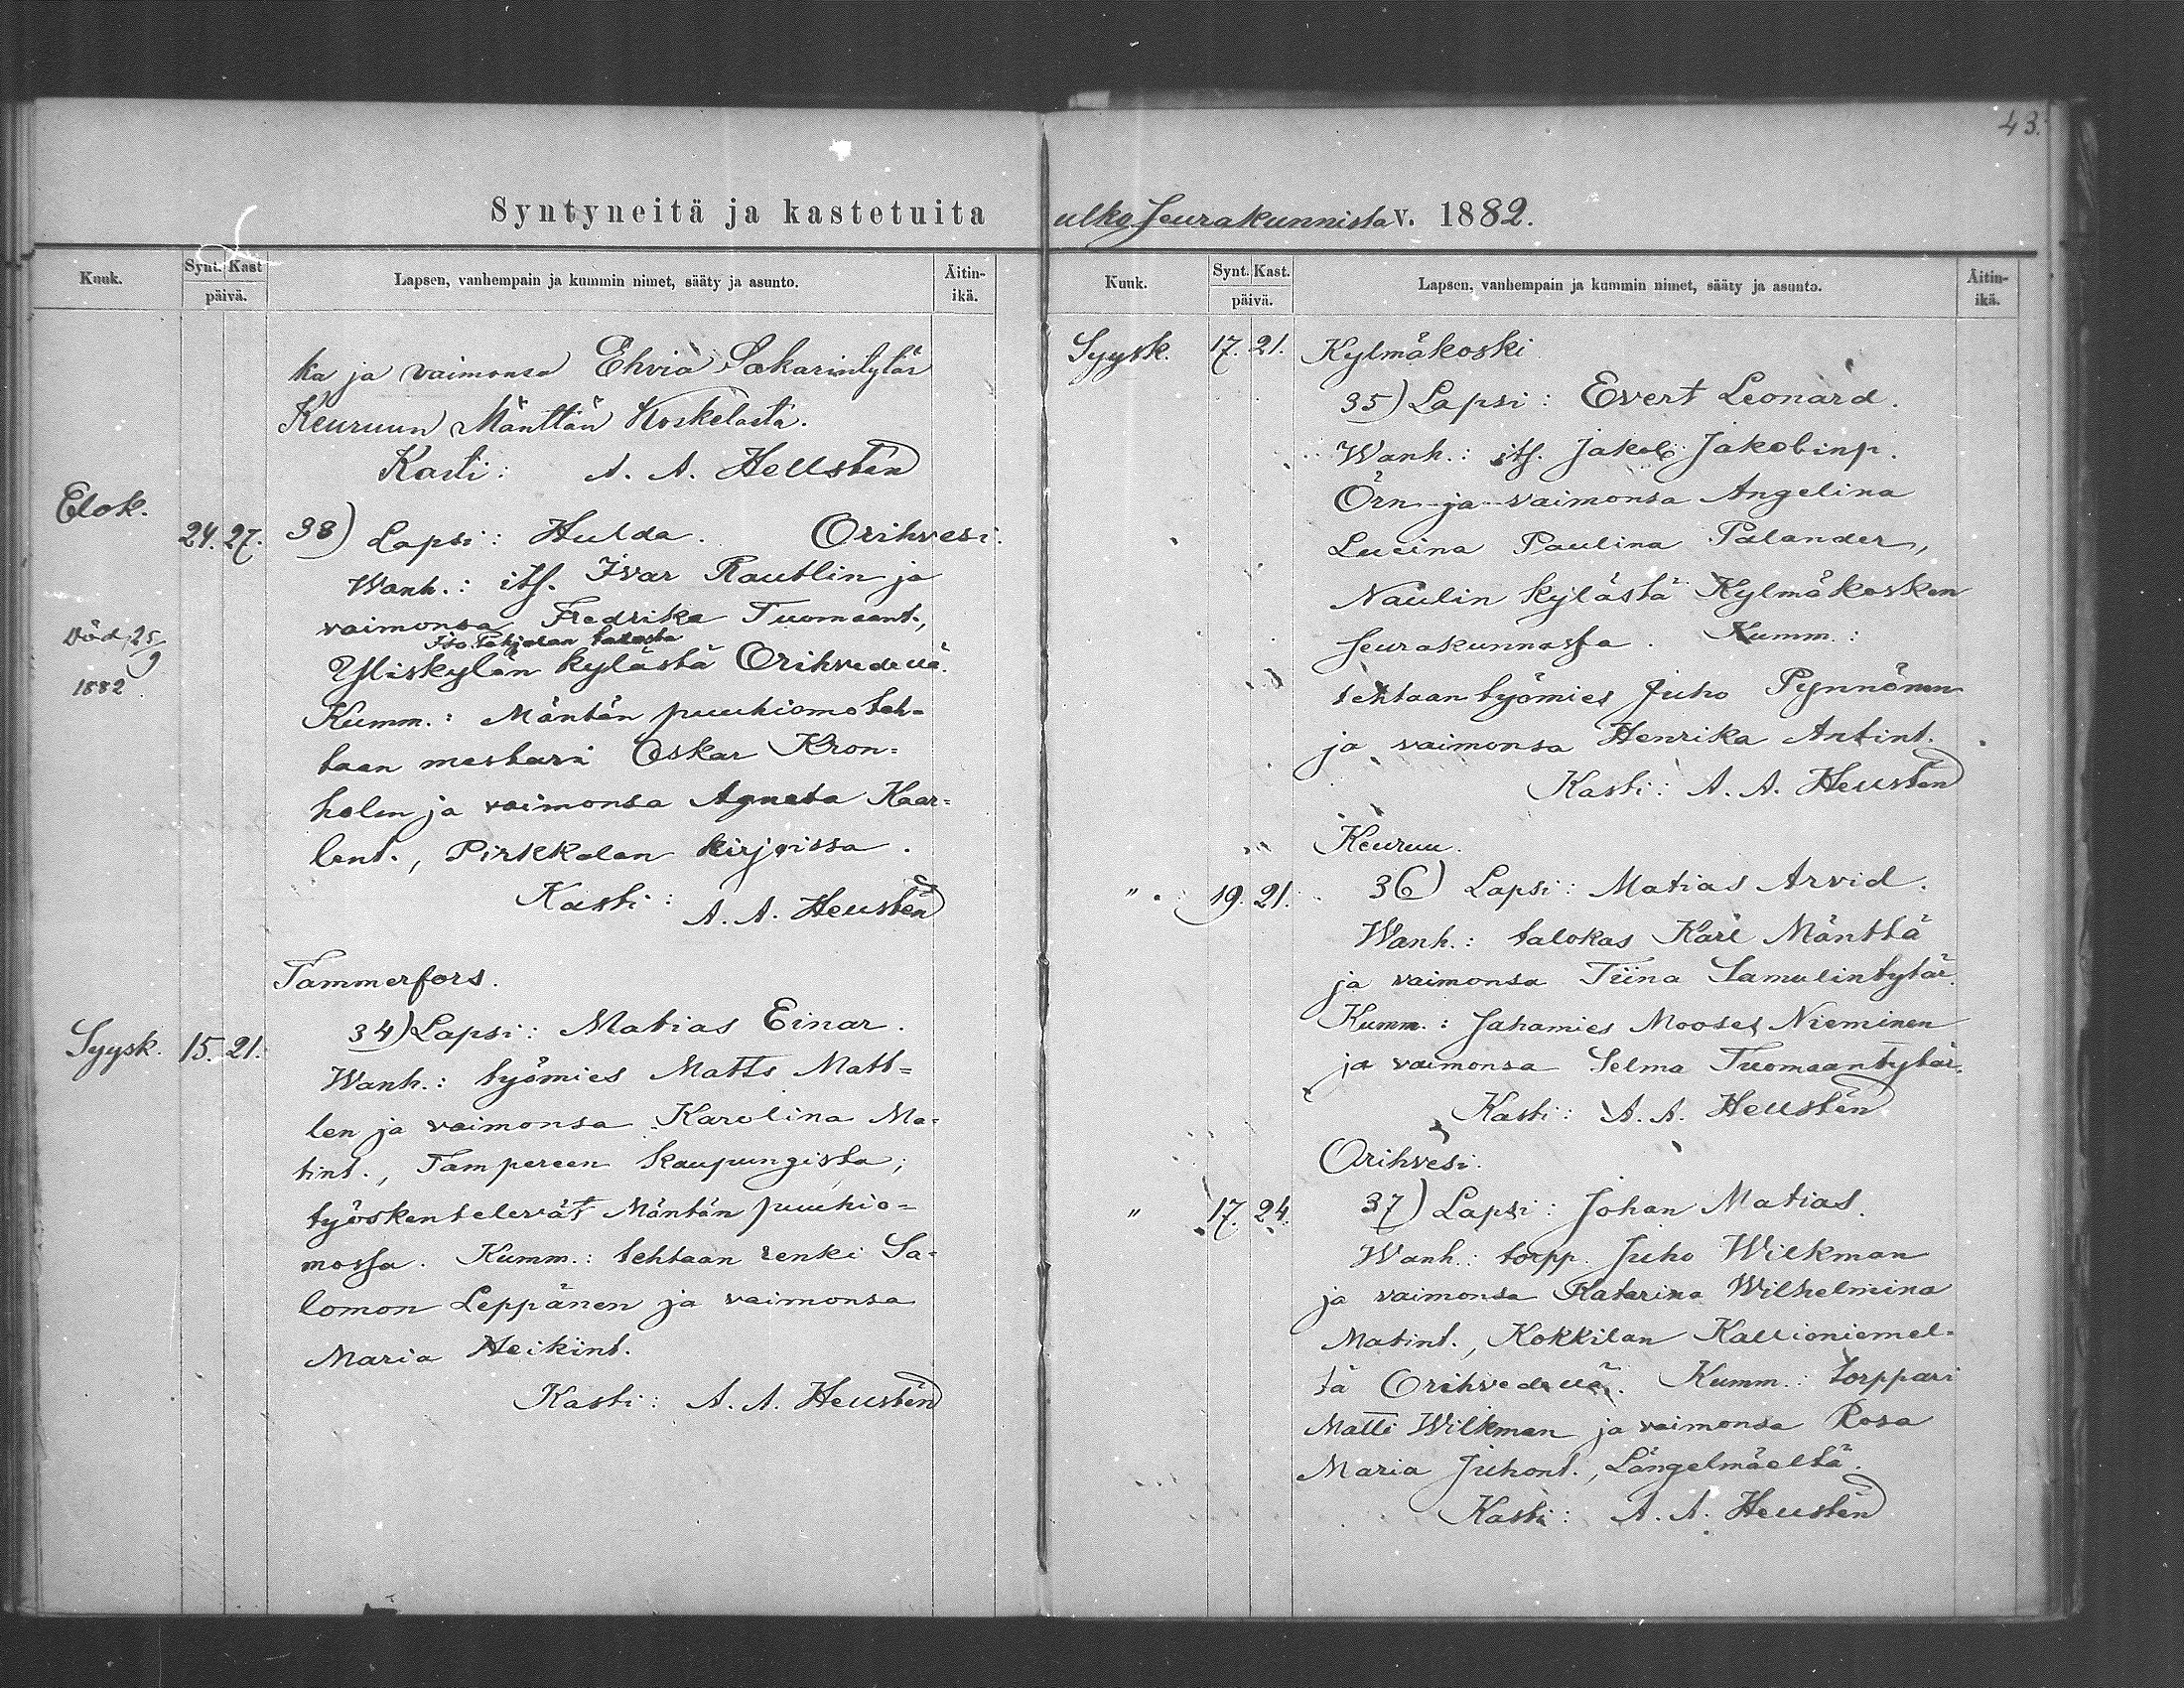 43.
Syntyneitä ja kastetuita ulkoseurakunnista v. 1882.
Kuuk. Synt. Kast päivä. Lapsen, vanhempain ja kummin nimet, sääty ja asunto. Äitin-ikä.
ka ja vaimonsa Ehvia Sakarintytär
Keuruun Mänttän Koskelasta.
Kasti: A. A. Hellstén
Elok. 24. 27. 33) Lapsi: Hulda. Orihvesi.
Wanh.: its. Ivar Rautlin ja
vaimonsa Fredrika Tuomaant.,
Iso Pohjolan talosta
Yliskylän kylästä Orihvedellä.
Död 25/9
1882.
Kumm.: Mäntän puuhiomoteh-
taan mestari Oskar Kron-
holm ja vaimonsa Agneta Kaar-
lent., Pirkkalan kirjoissa.
Kasti: A. A. Hellstén
Tammerfors.
Syysk. 15. 21. 34) Lapsi: Matias Einar.
Wanh.: työmies Matts Matt-
len ja vaimonsa Karolina Ma-
tint., Tampereen kaupungista;
työskentelevät Mäntän puuhio-
mossa. Kumm.: tehtaan renki Sa-
lomon Leppänen ja vaimonsa
Maria Heikint.
Kasti: A. A. Hellstén
Kuuk. Synt. Kast. päivä. Lapsen, vanhempain ja kummin nimet, sääty ja asunto. Äitin-ikä.
Syysk. 17. 21. Kylmäkoski
35) Lapsi: Evert Leonard.
Wanh.: its. Jakob Jakobinp.
Örn ja vaimonsa Angelina
Lucina Paulina Palander,
Naulin kylästä Kylmäkosken
seurakunnassa. Kumm.:
tehtaan työmies Juho Pynnönen
ja vaimonsa Henrika Antint.
Kasti: A. A. Hellstén
Keuruu.
" 19. 21. 36) Lapsi: Matias Arvid.
Wanh.: talokas Karl Mänttä
ja vaimonsa Tiina Samulintytär.
Kumm.: Sahamies Mooses Nieminen
ja vaimonsa Selma Tuomaantytär.
Kasti: A. A. Hellstén
Orihvesi.
" 17. 24. 37) Lapsi: Johan Matias.
Wanh.: torpp. Juho Wilkman
ja vaimonsa Katarina Wilhelmina
Matint., Kokkilan Kallioniemel-
tä Orihvedellä. Kumm.: torppari
Matti Wilkman ja vaimonsa Rosa
Maria Juhont., Längelmäeltä.
Kasti: A. A. Hellstén